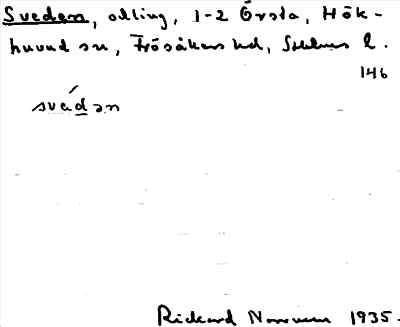 Sveden, odling, 1-2 Örsta, Hök-
huvud sn, Frösåkers hd, Sthlms l.
146
svédən
Rickard 1935.